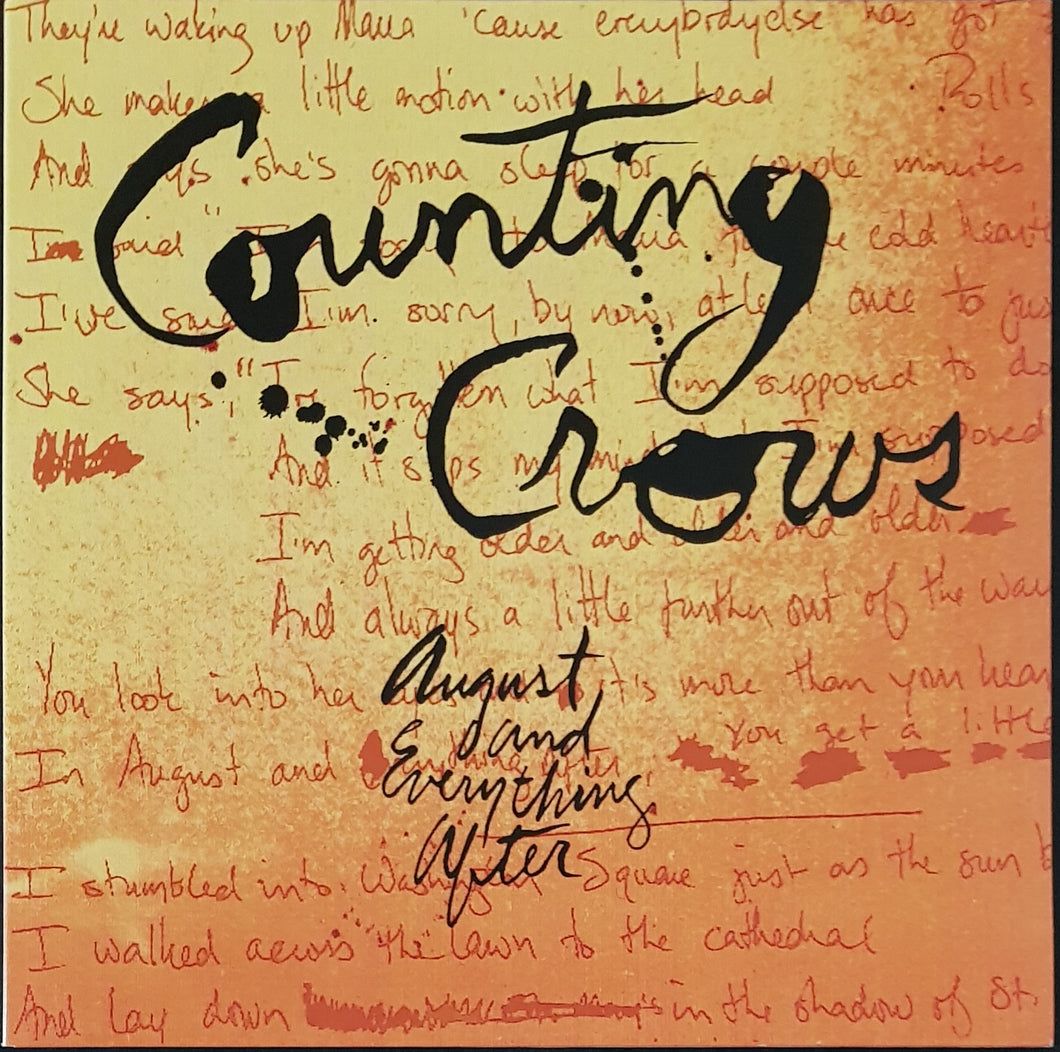 They're waking up Maria 'cause everybodyelse has got
She makes a little motion with her head
Rolls
And says she's gonna sleep for a couple minutes
Counting
I said "I'm sorry to Maria for the cold hearte
I've said I'm sorry, by now, at least once to jus
She says, "I've forgotten what I'm supposed to do
Crows
And it slips my mind that I'm supposed
I'm getting older and older and older
And always a little farther out of the way
You look into her eyes it's more than your hear
August
and
Everything
After
In August and Everything After, You get a little
I stumbled into Washington Square just as the sun b
I walked across the lawn to the cathedral
And lay down in the shadow of St.